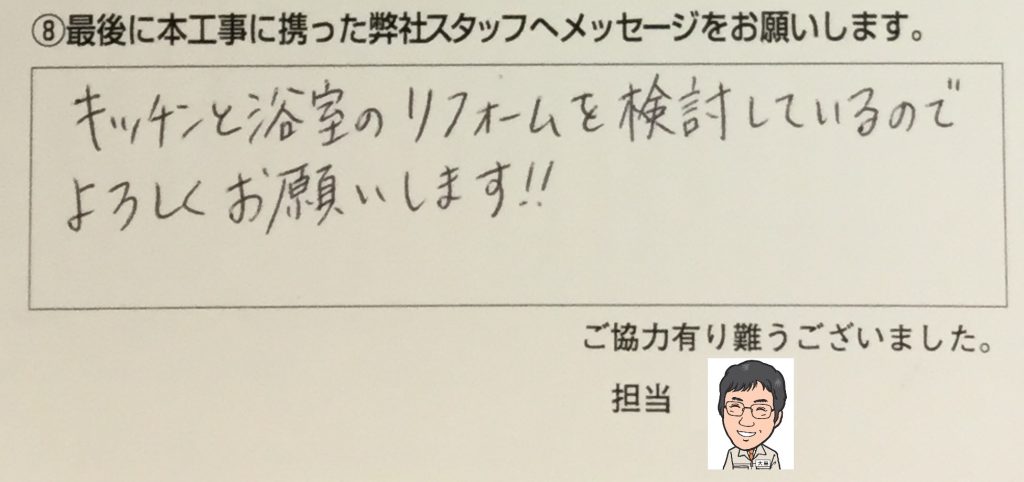 ⑧最後に本工事に携った弊社スタッフへメッセージをお願いします。
キッチンと浴室のリフォームを検討しているので
よろしくお願いします!!
ご協力有り難うございました。
担当